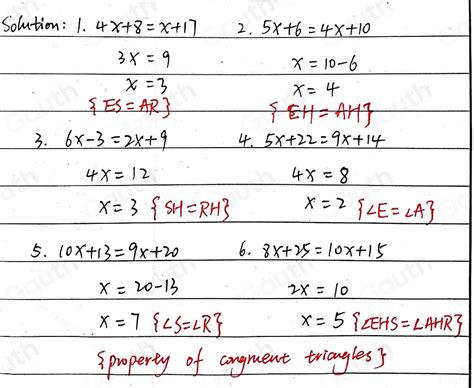 Solution: 1. 4x+8=x+17 2. 5x+6=4x+10
3x = 9 x = 10-6
x = 3 x = 4
{ES=AR} {EH=AH}
3. 6x-3=2x+9 4. 5x+22=9x+14
4x = 12 4x = 8
x = 3 {SH=RH} x = 2 {∠E=∠A}
5. 10x+13=9x+20 6. 8x+25=10x+15
x = 20-13 2x = 10
x = 7 {∠S=∠R} x = 5 {∠EHS=∠AHR}
{property of congruent triangles}